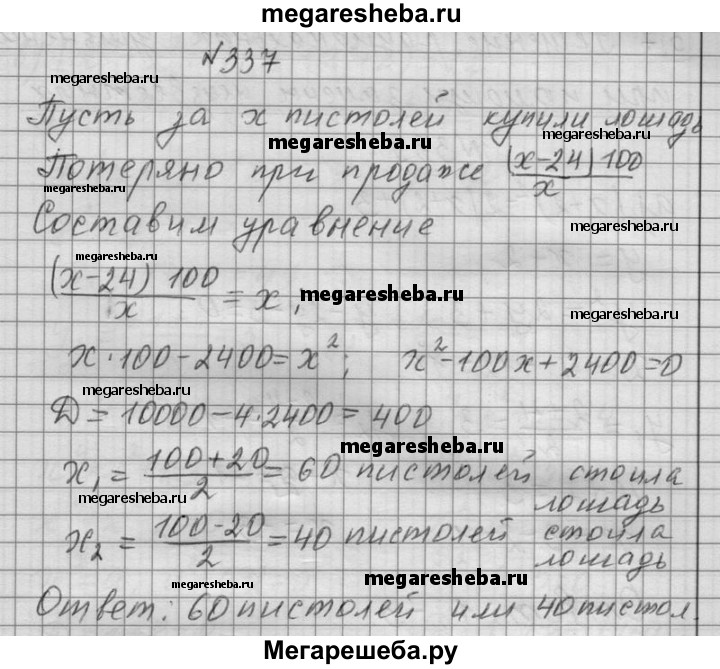 megaresheba.ru
N337
megaresheba.ru
Пусть за x пистолей купили лошадь
megaresheba.ru
megaresheba.ru
Потеряно при продаже (x-24) 100 / x
megaresheba.ru
Составим уравнение
megaresheba.ru
(x-24) 100 / x = x;
megaresheba.ru
megaresheba.ru
x·100-2400=x²; x²-100x+2400=0
megaresheba.ru
Д=10000-4·2400=400
megaresheba.ru
x₁ = (100+20)/2 = 60 пистолей стоила
лошадь
megaresheba.ru
megaresheba.ru
x₂ = (100-20)/2 = 40 пистолей стоила
лошадь
megaresheba.ru
megaresheba.ru
Ответ: 60 пистолей или 40 пистол.
Мегарешеба.ру